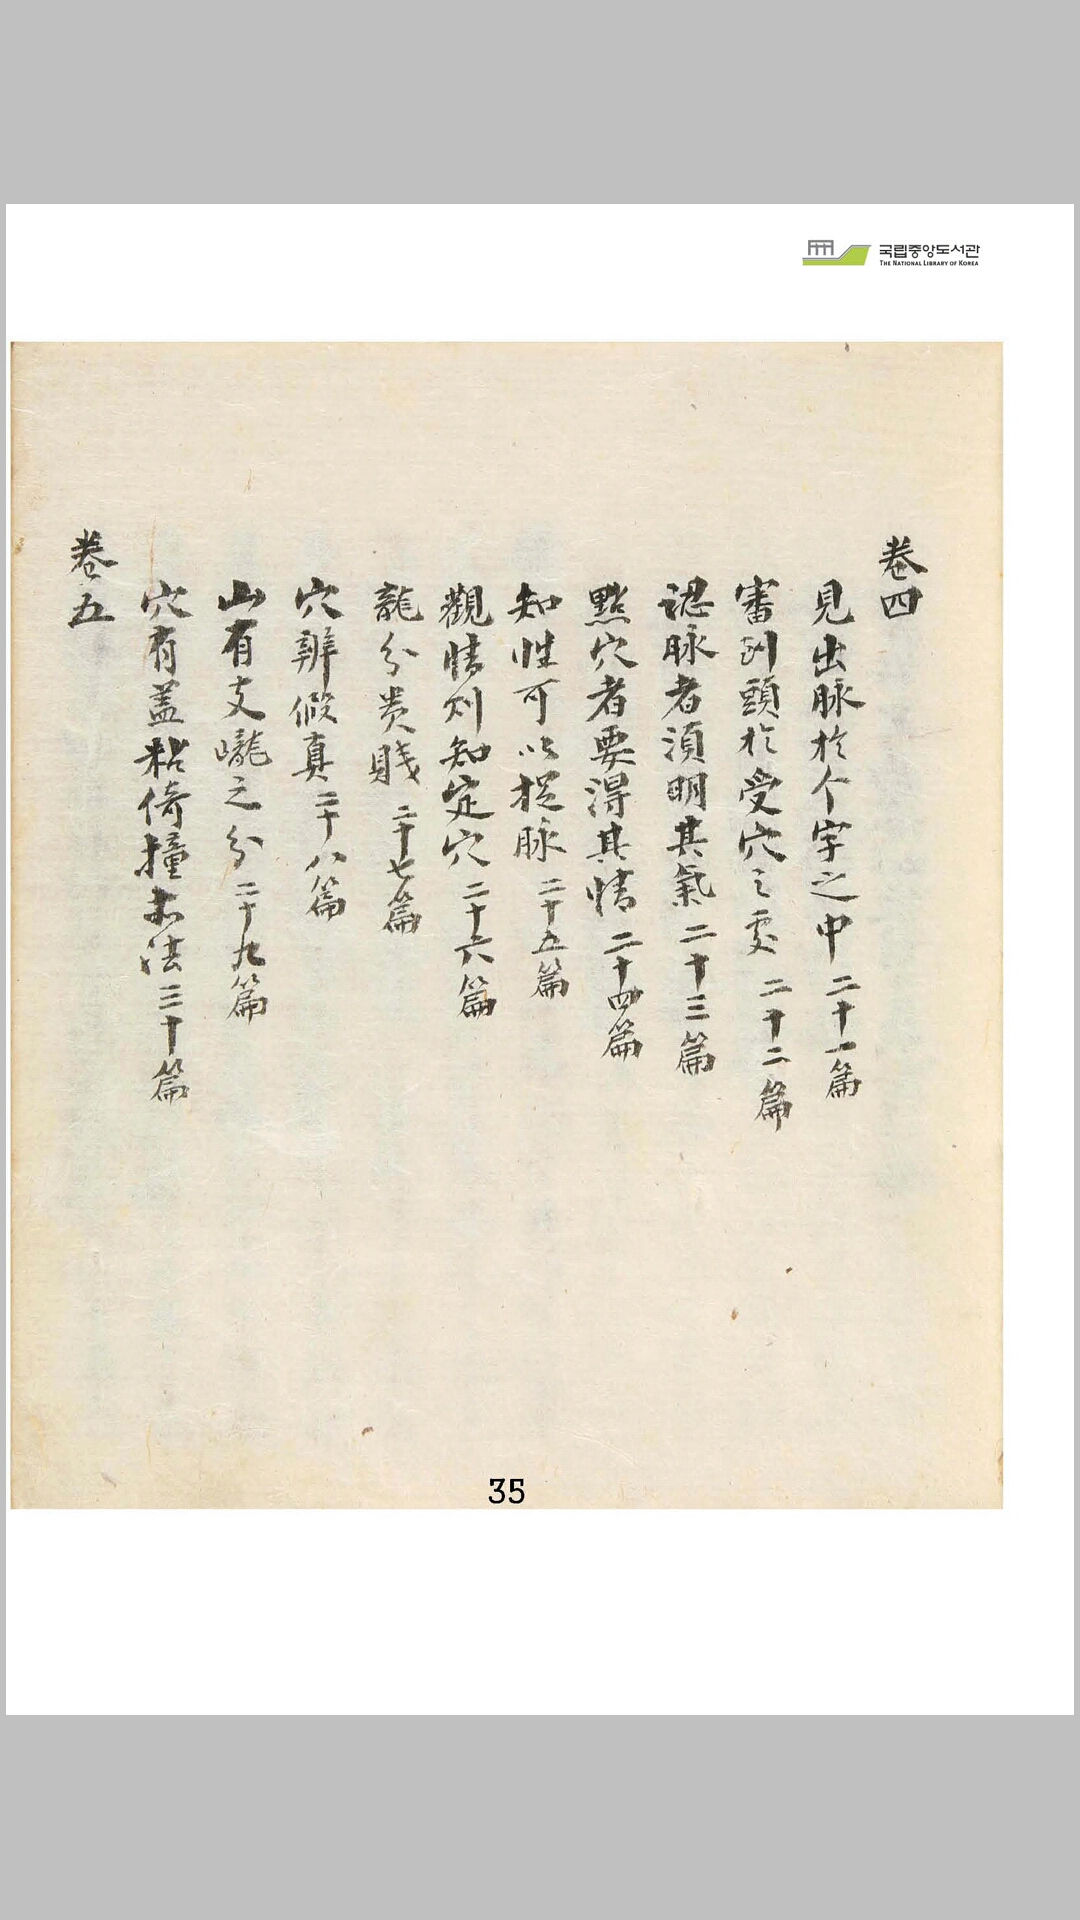 국립중앙도서관
THE NATIONAL LIBRARY OF KOREA
卷四
見出脉於个字之中 二十一篇
審到頭於受穴之處 二十二篇
認脉者須明其氣 二十三篇
點穴者要得其情 二十四篇
知性可以探脉 二十五篇
觀情則知定穴 二十六篇
龍分贵賤 二十七篇
穴辨假真 二十八篇
山有支巃之分 二十九篇
穴有盖粘倚撞法 三十篇
卷五
35